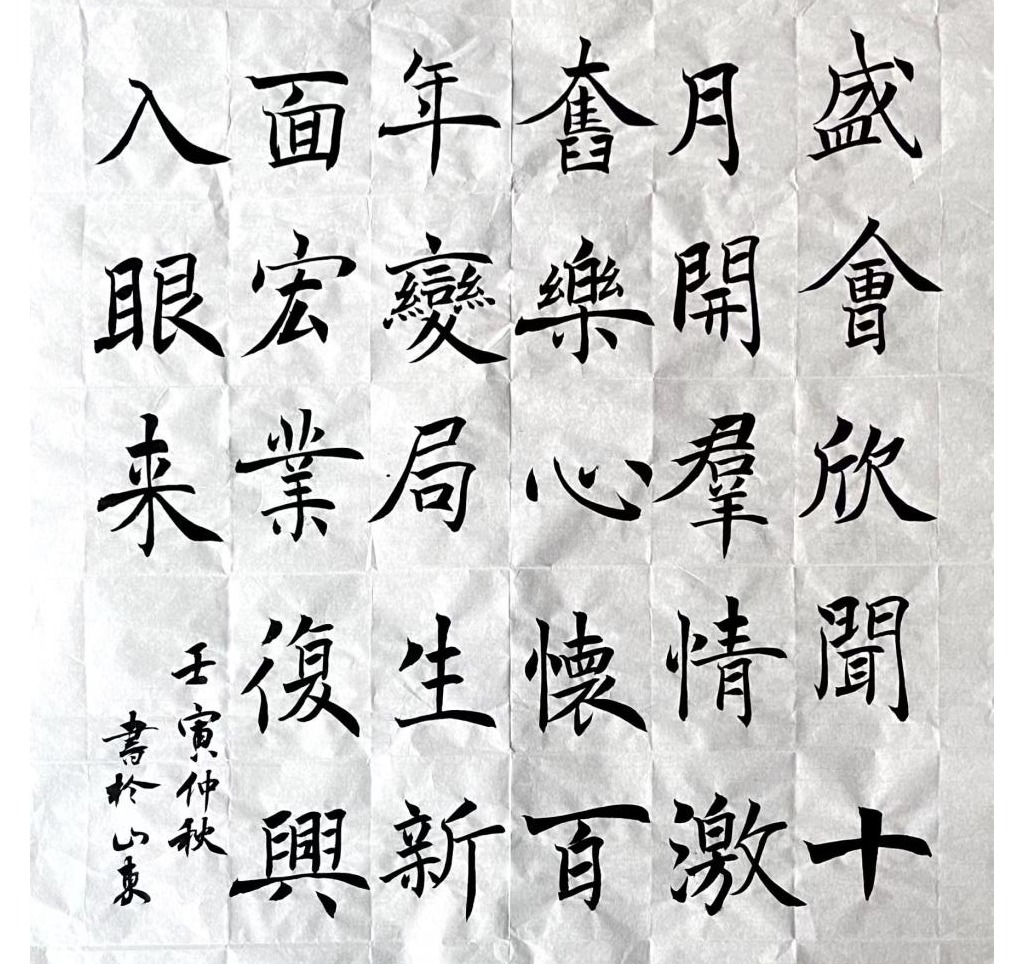 盛會欣聞十
月開羣情激
奮樂心懷百
年變局生新
面宏業復興
入眼来
壬寅仲秋
書於山東